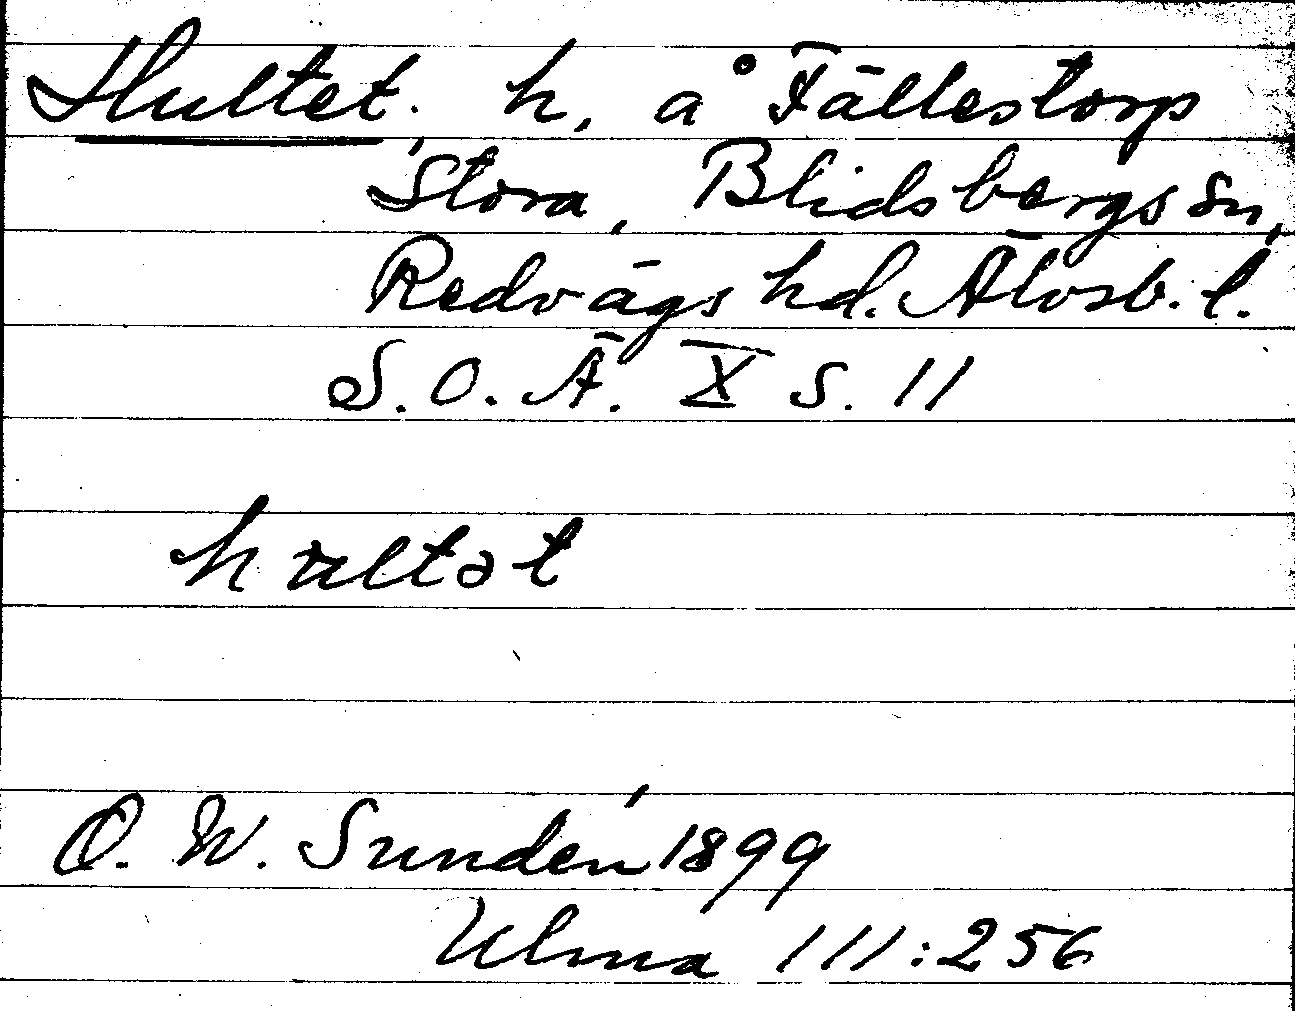 Hultet, h. å Fällestorp
Stora, Blidsbergs sn,
Redvägs hd. Älvsb. l.
S.O.Ä. X s. 11
hultət
O. W. Sundén 1899
Ulma 111:256